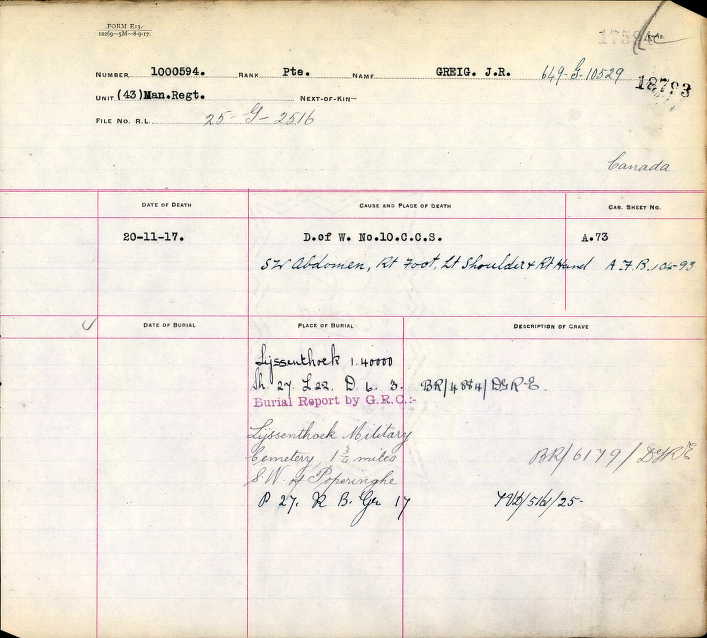 FORM E13.
17584
NUMBER 1000594. RANK Pte. NAME GREIG. J.R. 649-G-10529
18793
UNIT (43)Man.Regt. NEXT-OF-KIN—
FILE NO. R.L. 25-G-2516
Canada
DATE OF DEATH CAUSE AND PLACE OF DEATH CAS. SHEET NO.
20-11-17. D.of W. No.10.C.C.S. A.73
SW Abdomen, Rt Foot, Lt Shoulder & Rt Hand A.F.B. 104-93
DATE OF BURIAL PLACE OF BURIAL DESCRIPTION OF GRAVE
Lijssenthoek 1.40000
Sh. 27. L 22. D. 6. 3. BR/4884/DGR.E.
Burial Report by G.R.C.:-
Lijssenthoek Military
Cemetery 1 3/4 miles BR/6179/DGRE
S.W. of Poperinghe
P 27. R B. Gr 17